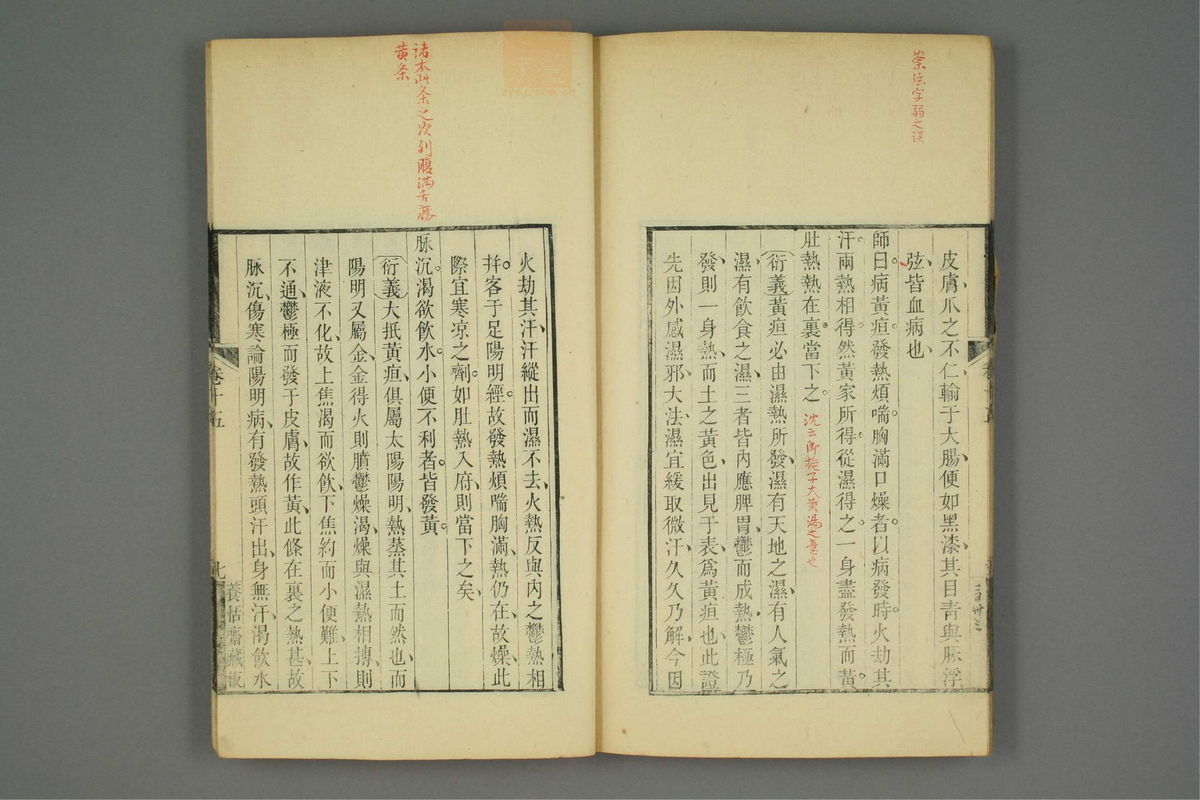 案弦字弱之误
皮膚爪之不仁輸于大腸便如黑漆其目青與脉浮
弦皆血病也
師曰病黃疸發熱煩喘胸滿口燥者以病發時火劫其
汗兩熱相得然黃家所得從濕得之一身盡發熱而黃
肚熱熱在裏當下之
沈云即梔子大黃湯之意也
衍義黃疸必由濕熱所發濕有天地之濕有人氣之
濕有飲食之濕三者皆內應脾胃鬱而成熱鬱極乃
發則一身熱而土之黃色出見于表爲黃疸也此證
先因外感濕邪大法濕宜緩取微汗久久乃解今因
卷十五
諸本此条之次列腹滿舌痿
黄条
火劫其汗汗縱出而濕不去火熱反與內之鬱熱相
并客于足陽明經故發熱煩喘胸滿熱仍在故燥此
際宜寒凉之劑如肚熱入府則當下之矣
脉沉渴欲飲水小便不利者皆發黃
衍義大抵黃疸俱屬太陽陽明熱蒸其土而然也而
陽明又屬金金得火則膹鬱燥渴燥與濕熱相搏則
津液不化故上焦渴而欲飲下焦約而小便難上下
不通鬱極而發于皮膚故作黃此條在裏之熱甚故
脉沉傷寒論陽明病有發熱頭汗出身無汗渴飲水
卷十五
七
養恬齋藏板